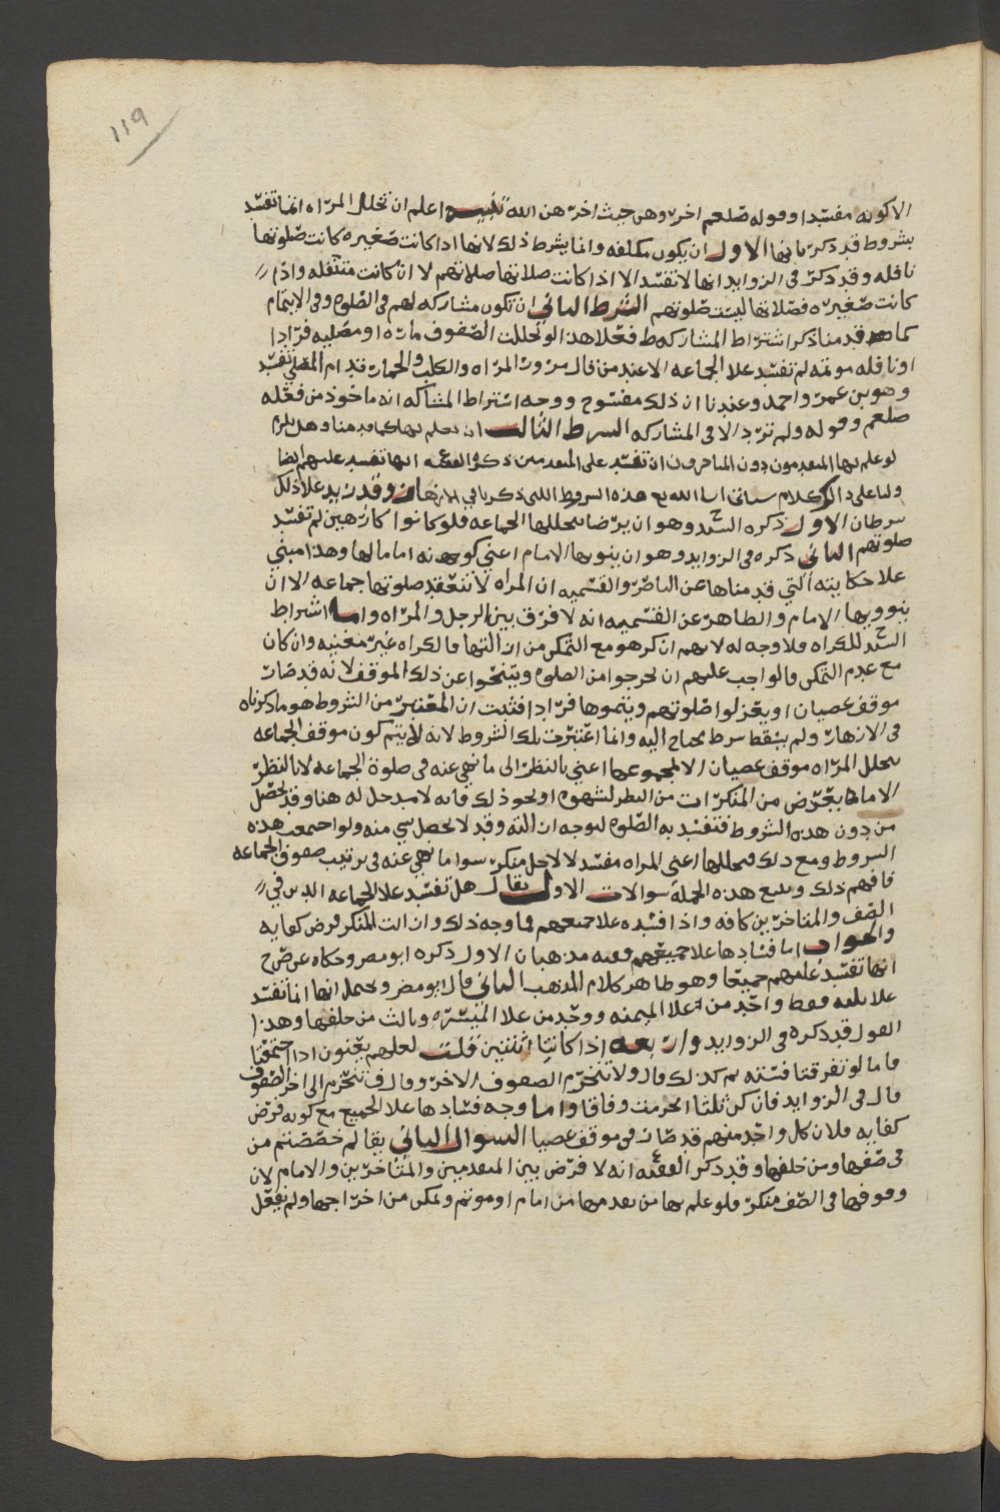 ١١٩
الا كونه مفسدا وقوله صلعم اخروهن حيث اخرهن الله تنبيه اعلم ان تخلل المراه انما تفسد
بشروط قد ذكرناها الاول ان يكون مكلفه وانما يشرط ذلك لانها اذا كانت صغيره كانت صلوتها
نافله وقد ذكر في الزوايد انها لا تفسد الا اذا كانت صلاتها صلاتهم لا ان كانت متنفله واذا
كانت صغيره فصلاتها ليست صلوتهم الشرط الثاني ان تكون مشاركه لهم في الصلوه وفي الايتمام
كما قدمنا ذكر اشتراط المشاركه فعلا هذا لو تخللت الصفوف ماره او مصليه فرادا
او نافله موتمه لم تفسد علا الجماعه الا عند من قال مرور المراه والكلب والحمار قدام المصلي تفسد
وهو بن عمر واحمد وعندنا ان ذلك مفسوح ووجه اشتراط المشاركه انه ماخوذ من فعله
صلعم وقوله ولم ترد الا في المشاركه الشرط الثالث ان يعلم بها كما قدمنا وهل يلزم
لو علم بها المتقدمون دون المتاخرون ان تفسد على المتقدمين ذكر الفقيه انها تفسد عليهم ايضا
ولنا على ذلك كلام سياتي ان شا الله تع هذه الشروط التي ذكرنا في الازهار وقد زيد علا ذلك
شرطان الاول ذكره السيد وهو ان يرضا بتخللها الجماعه فلو كانوا كارهين لم تفسد
صلوتهم الثاني ذكره في الزوايد وهو ان ينوبها الامام اعني كونه اماما لها وهذا مبني
علا حكايته التي قدمناها عن الناصر والقسميه ان المراه لا تنعقد صلوتها جماعه الا ان
ينوويها الامام والظاهر عن القسميه انه لا فرق بين الرجل والمراه واما اشتراط
السيد للكراه فلا وجه له لانهم ان كرهو مع التمكن من ازالتها فالكراه غير مغنيه وان كان
مع عدم التمكن فالواجب عليهم ان يخرجوا من الصلوه ويتنحوا عن ذلك الموقف لانه قد صار
موقف عصيان او يعزلوا صلوتهم ويتموها فرادا فثبت ان المعتبر من الشروط هو ما ذكرناه
في الازهار ولم يسقط شرط يحتاج اليه وانما اعتبرت تلك الشروط لانه لا يتم كون موقف الجماعه
بتخلل المراه موقف عصيان الا بمجموعها اعني بالنظر الى ما نهي عنه في صلوة الجماعه لا بالنظر
الا ما يعرض من المنكرات من النظر لشهوه او نحو ذلك فانه لا مدخل له هنا وقد يحصل
من دون هذه الشروط فتفسد به الصلوه لوجه ازالته وقد لا يحصل شي منه ولو اجتمعت هذه
الشروط ومع ذلك فتخللها اعني المراه مفسد لا لاجل منكر سوا ما نهي عنه في ترتيب صفوف الجماعه
فافهم ذلك ويتبع هذه الجمله سوالات الاول يقال هل تفسد علا الجماعه الذين في
الصف والمتاخرين كافه واذا فسده علا جميعهم فما وجه ذلك وازالت المنكر فرض كفايه
والجواب اما فسادها علا جميعهم ففيه مذهبان الاول ذكره ابو مضر وحكاه عن ص ح
انها تفسد عليهم جميعا وهو ظاهر كلام المذهب الثاني قال ابو مضر ويحتمل انها انما تفسد
علا ثلثه فقط واحد من علا الميمنه وواحد من علا الميسره وثالث من خلفها وهذا
القول قد ذكره في الزوايد واربعه اذا كانتا اثنتين قلت لعلهم يعنون اذا اجتمعتا
فاما لو تفرقتا فستة ثم كذلك قال ولا تنخرم الصفوف الاخر وقال ف تنخرم الى اخر الصفوف
قال في الزوايد فان كن ثلثا انخرمت وفاقا واما وجه فسادها علا الجميع مع كونه فرض
كفايه فلان كل واحد منهم قد صار في موقف عصيا السوال الثاني يقال لم خصصتم من
في صفها ومن خلفها وقد ذكر الفقيه انه لا فرض بين المتقدمين والمتاخرين والامام لان
وقوفها في الصف منكر فلو علم بها من تقدمها من امام او موتم وتمكن من اخراجها ولم يفعل